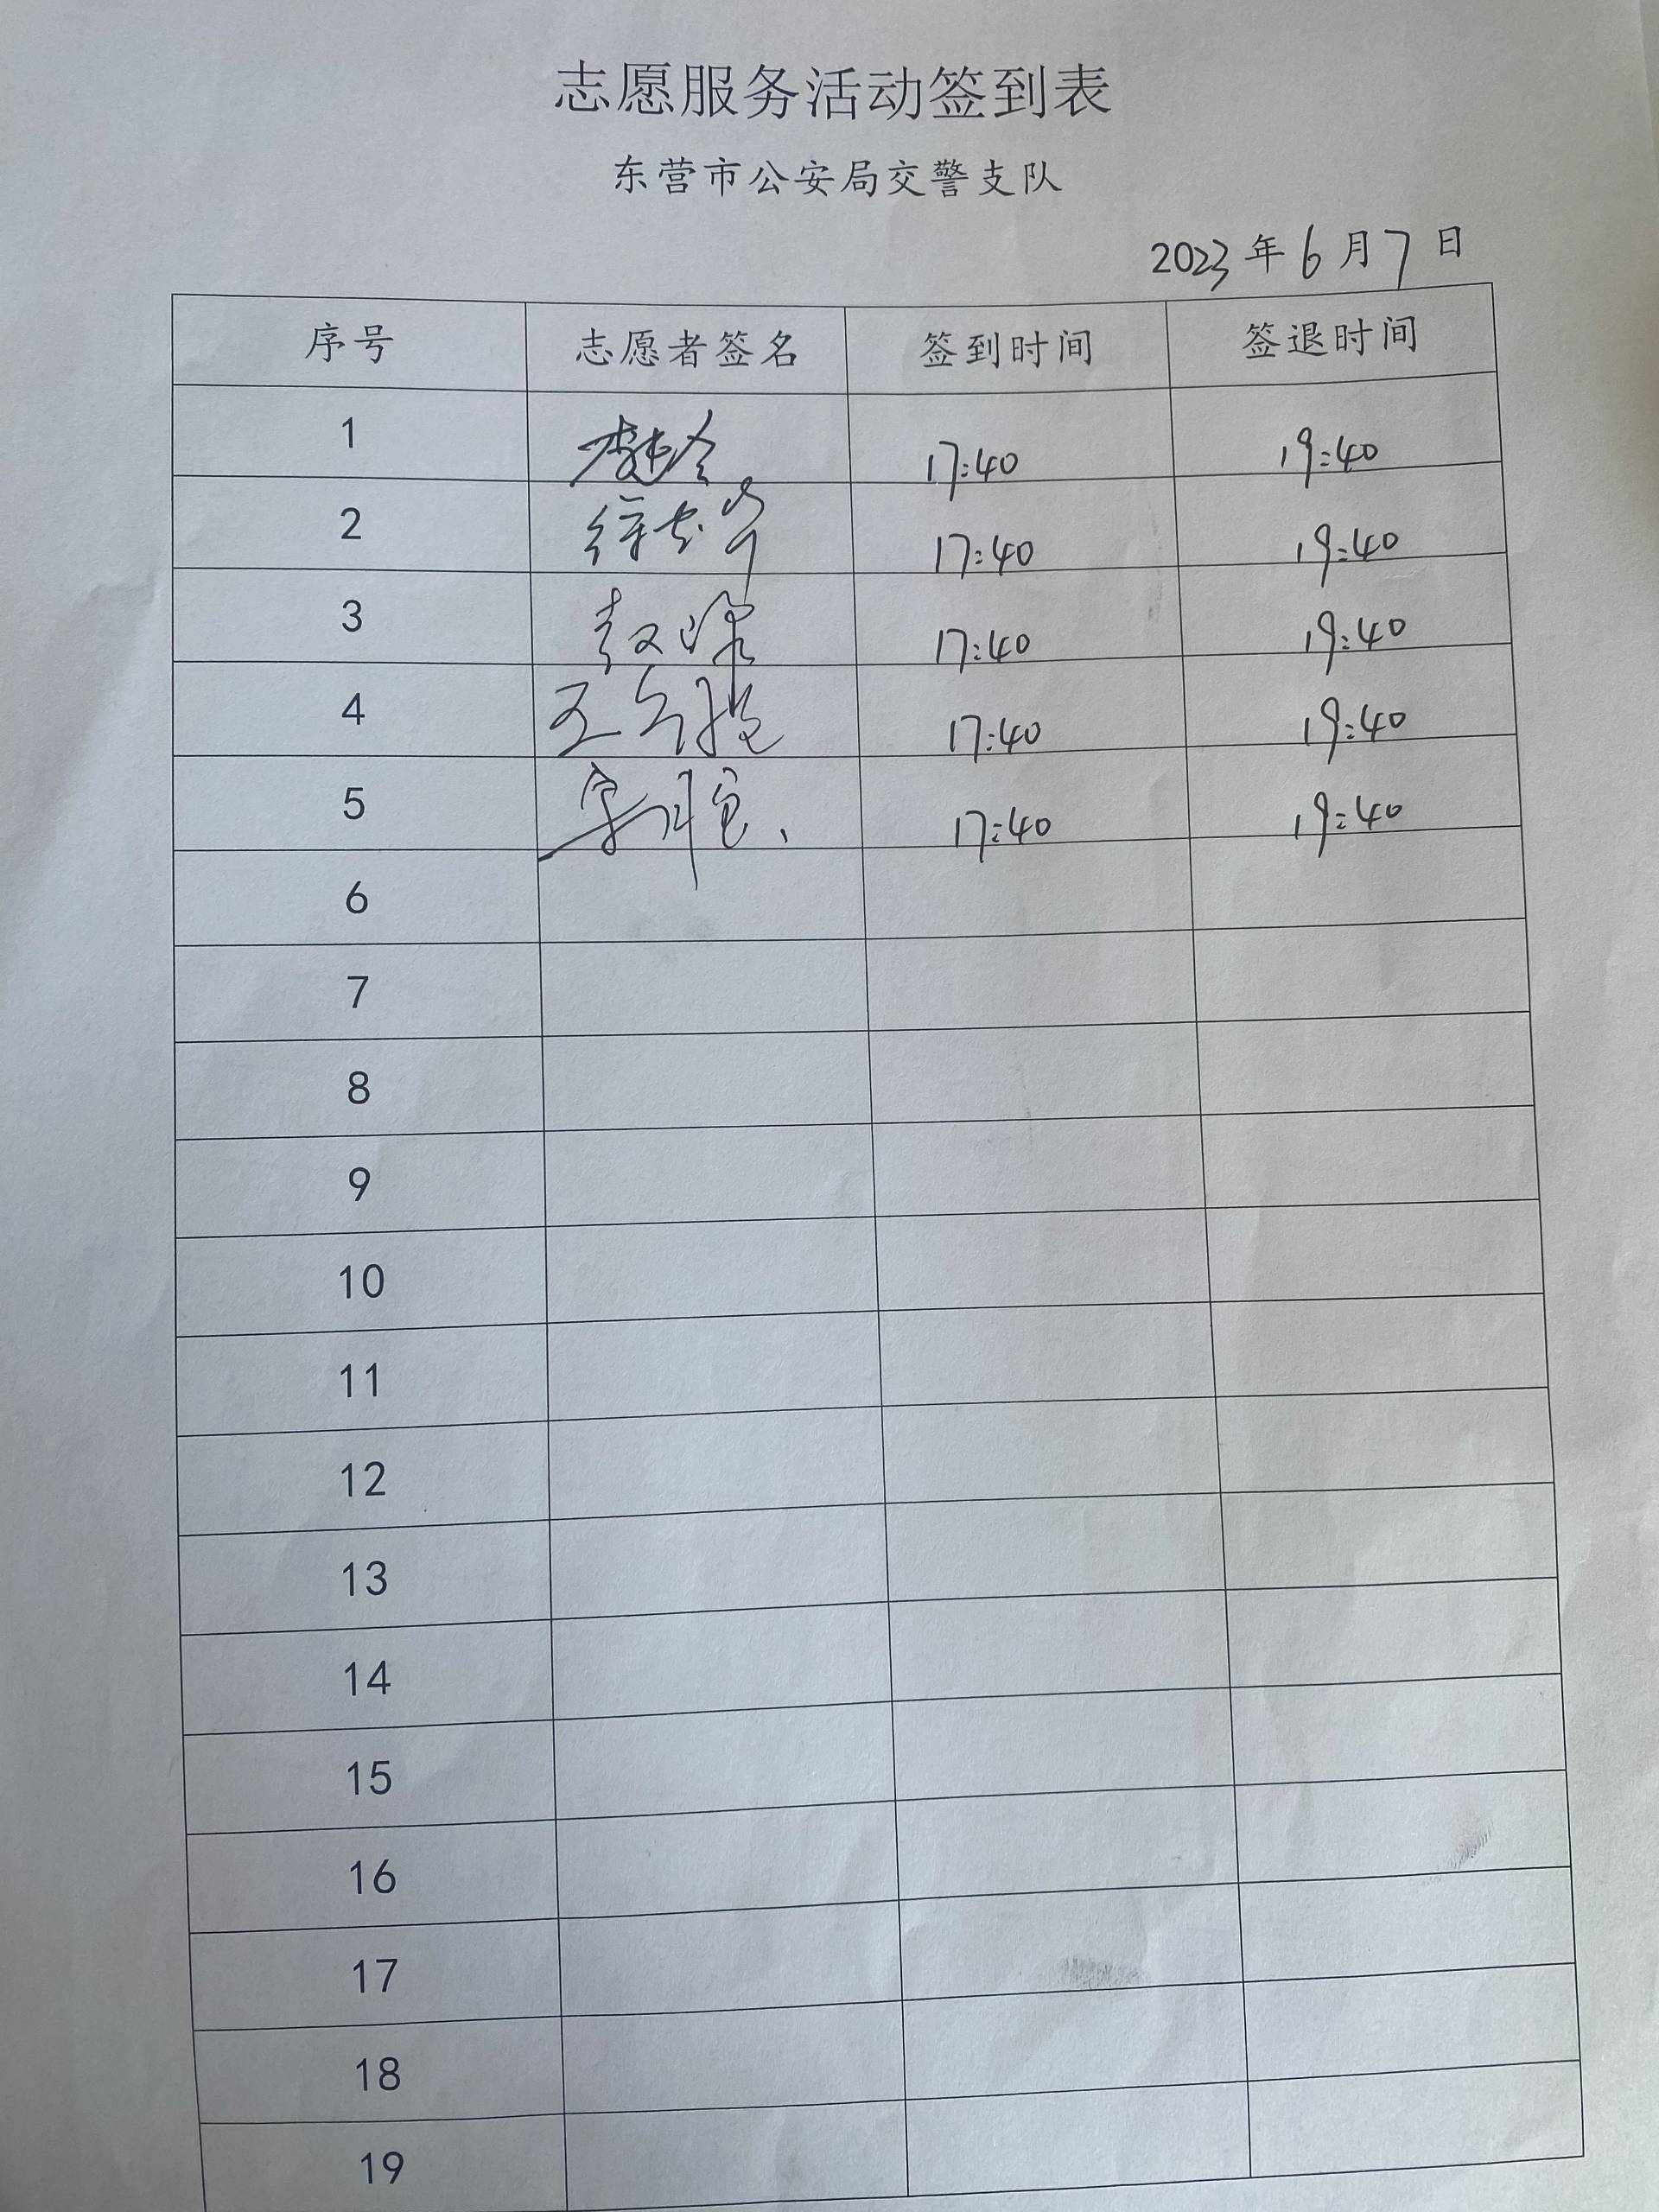 志愿服务活动签到表
东营市公安局交警支队
2023年6月7日
序号 志愿者签名 签到时间 签退时间
1 17:40 19:40
2 17:40 19:40
3 17:40 19:40
4 17:40 19:40
5 17:40 19:40
6
7
8
9
10
11
12
13
14
15
16
17
18
19